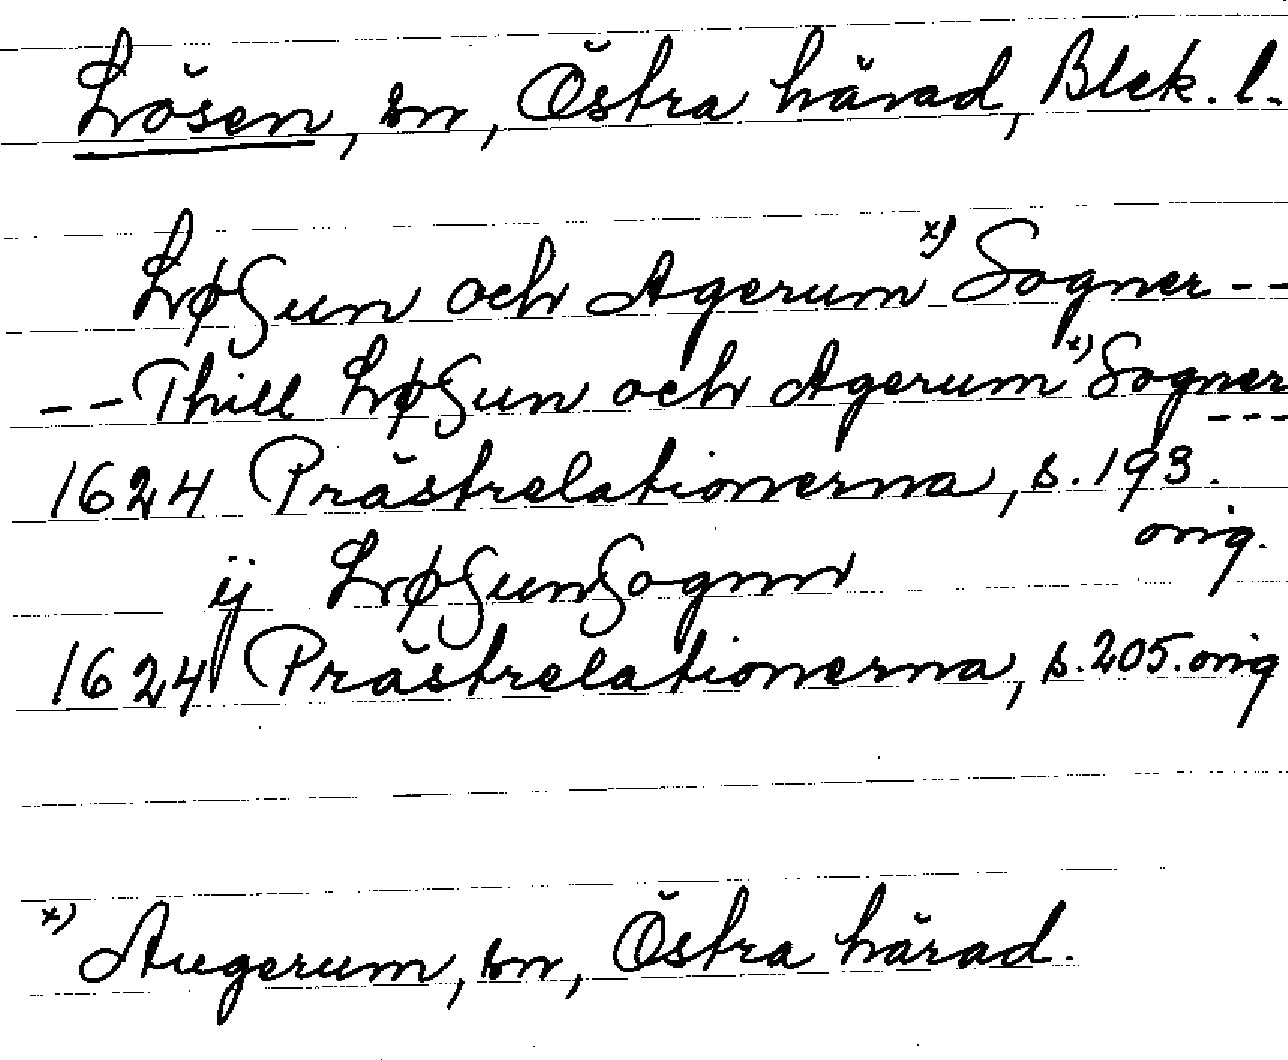 Lösen, sn, Östra härad, Blek. l.
LøSun och Agerum x) Sogner --
-- Thill LøSun och Agerum x) Sogner
---
1624 Prästrelationerna, s. 193.
orig.
ij LøSunSognn
1624 Prästrelationerna, s. 205. orig
x) Augerum, sn, Östra härad.